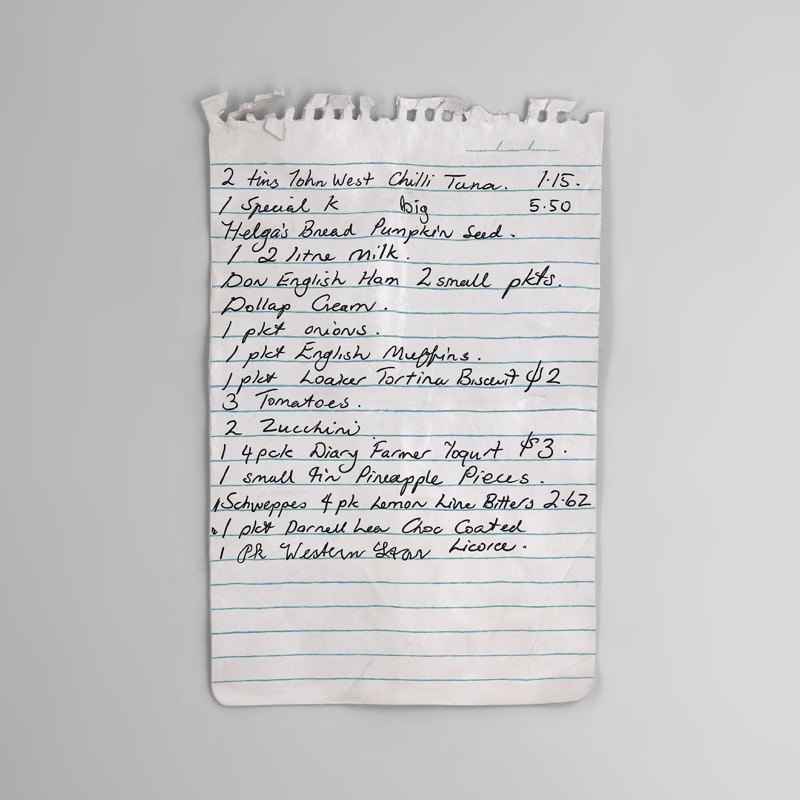 2 tins John West Chilli Tuna. 1.15.
1 Special K big 5.50
Helga's Bread Pumpkin Seed.
1 2 litre milk.
Don English Ham 2 small pkts.
Dollap Cream.
1 pkt onions.
1 pkt English Muffins.
1 pkt Loaker Tortina Biscuit $2
3 Tomatoes.
2 Zucchini
1 4pck Diary Farmer Yogurt $3.
1 small tin Pineapple Pieces.
1 Schweppes 4 pk Lemon Lime Bitters 2.62
1 pkt Darnell Lea Choc Coated
1 Pk Western Licorce.